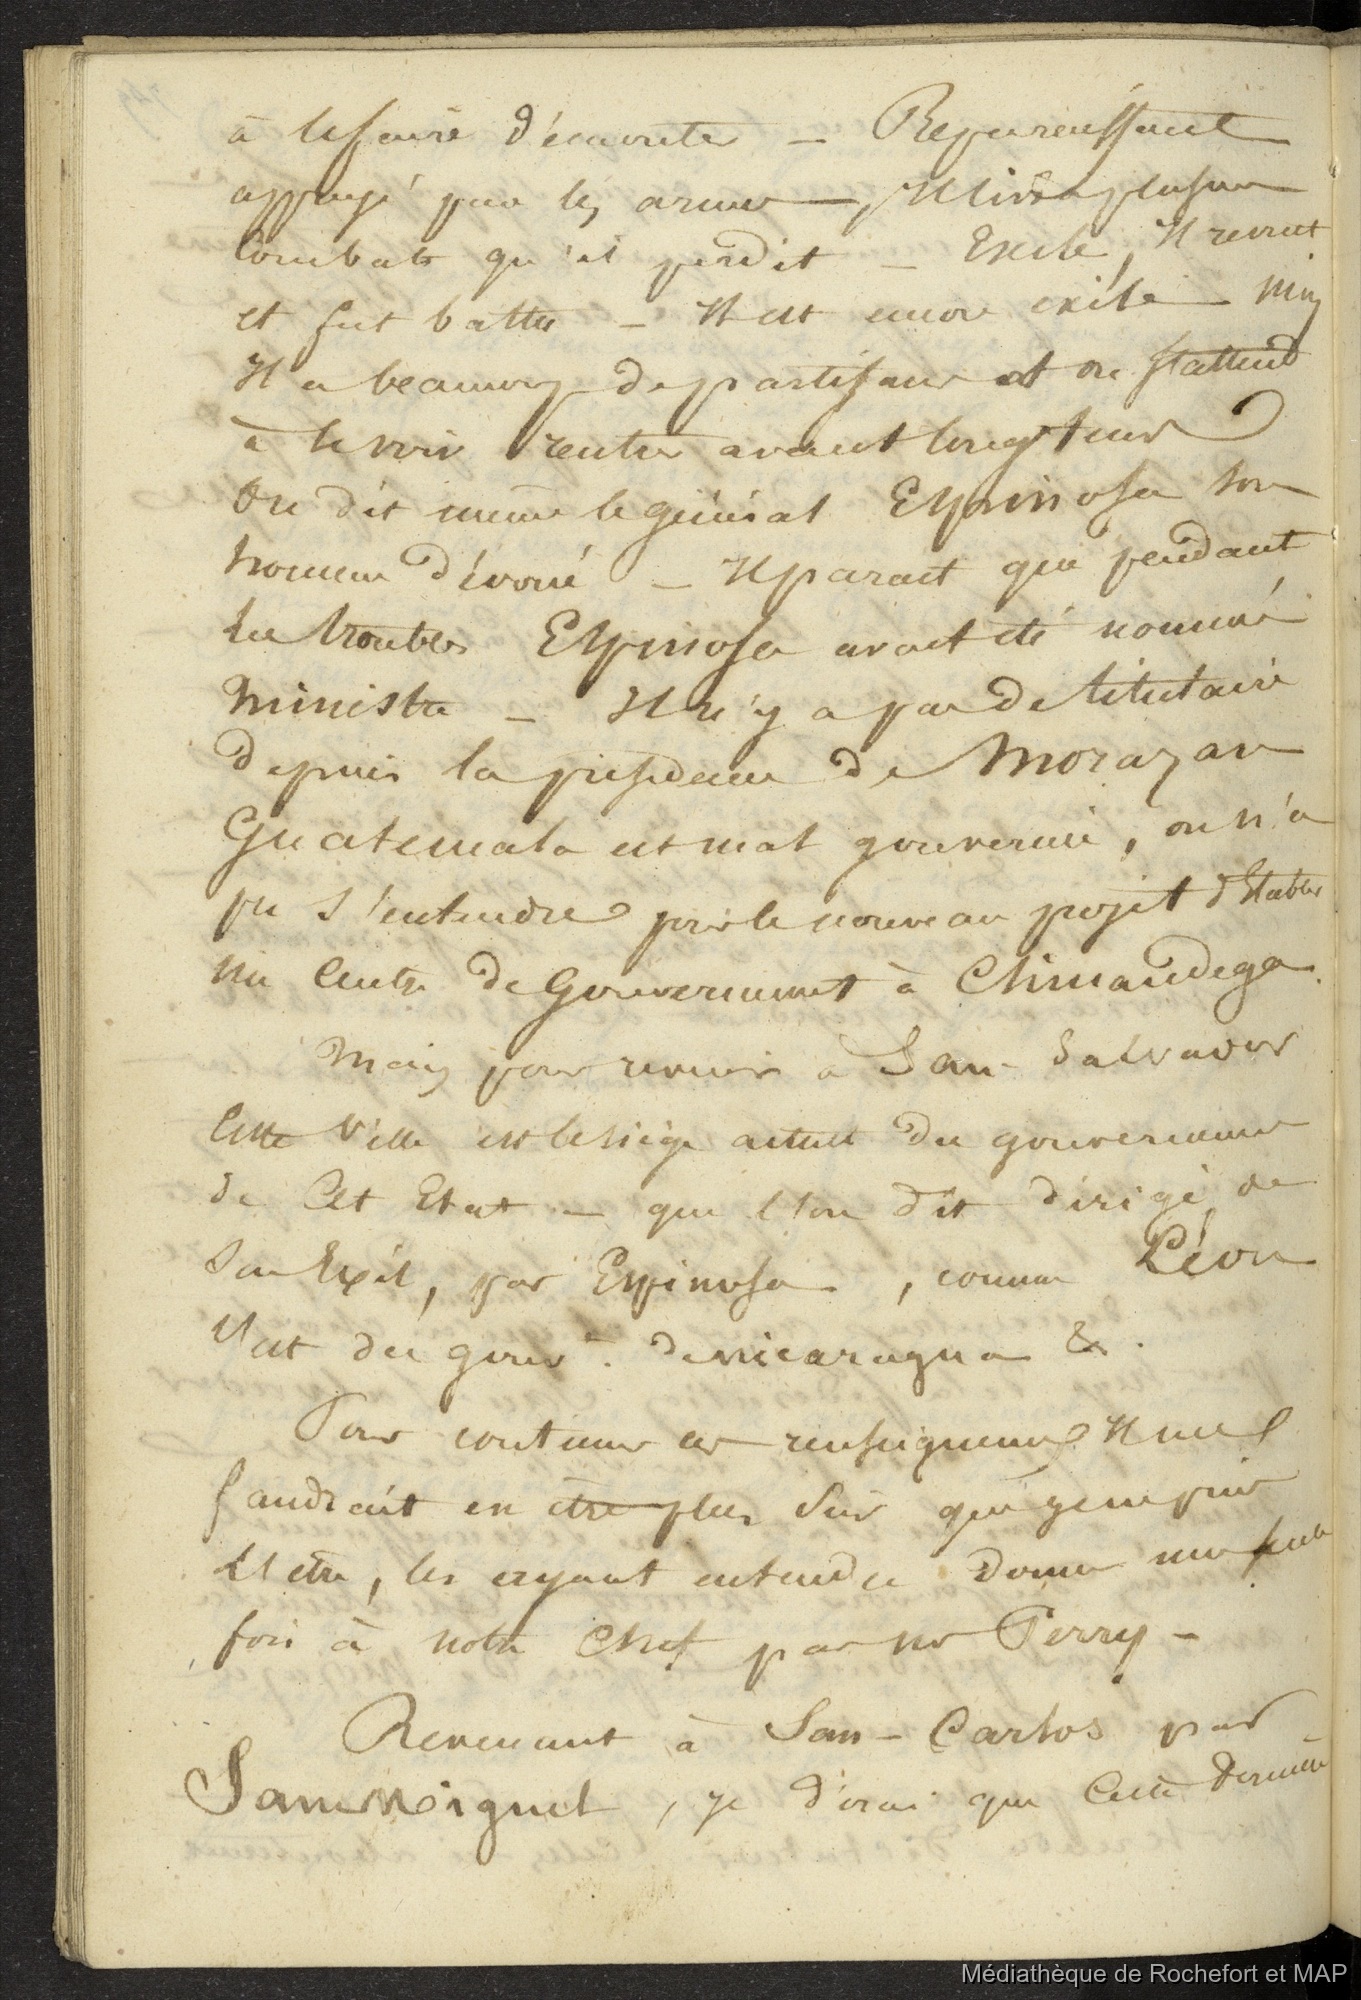 à le faire démonter — Reparaissant
appuyé par les armes —, Il livra plusieurs
Combats qu'il perdit — Exilé, Il revint
et fut battu — Il est encore exilé — Mais
Il a beaucoup de partisans et on s'attend
à le voir rentrer avant longtems
On dit même le général Espinosa son
homme dévoué — Il parait que pendant
les troubles Espinosa avait été nommé
Ministre — Il n'y a pas de titulaire
depuis la présidence de Morazan
Guatemala est mal gouverné, on n'a
pu s'entendre pour le nouveau projet d'Etablir
un Centre de Gouvernement à Chinandega.
Mais pour revenir à San-Salvador
Cette Ville est le siège actuel du gouvernement
de Cet Etat — que l'on dit dirigé, de
son Exil, par Espinosa, comme Léon
l'est du gouvt. de Nicaragua &.
Pour continuer ces renseignemens Il me
faudrait en être plus sûr que je ne puis
l'être, les ayant entendu donner une seule
fois à notre Chef par Mr Perry —
Revenant à San-Carlos par
San Miguel, je dirai que Cette dernière
Médiathèque de Rochefort et MAP